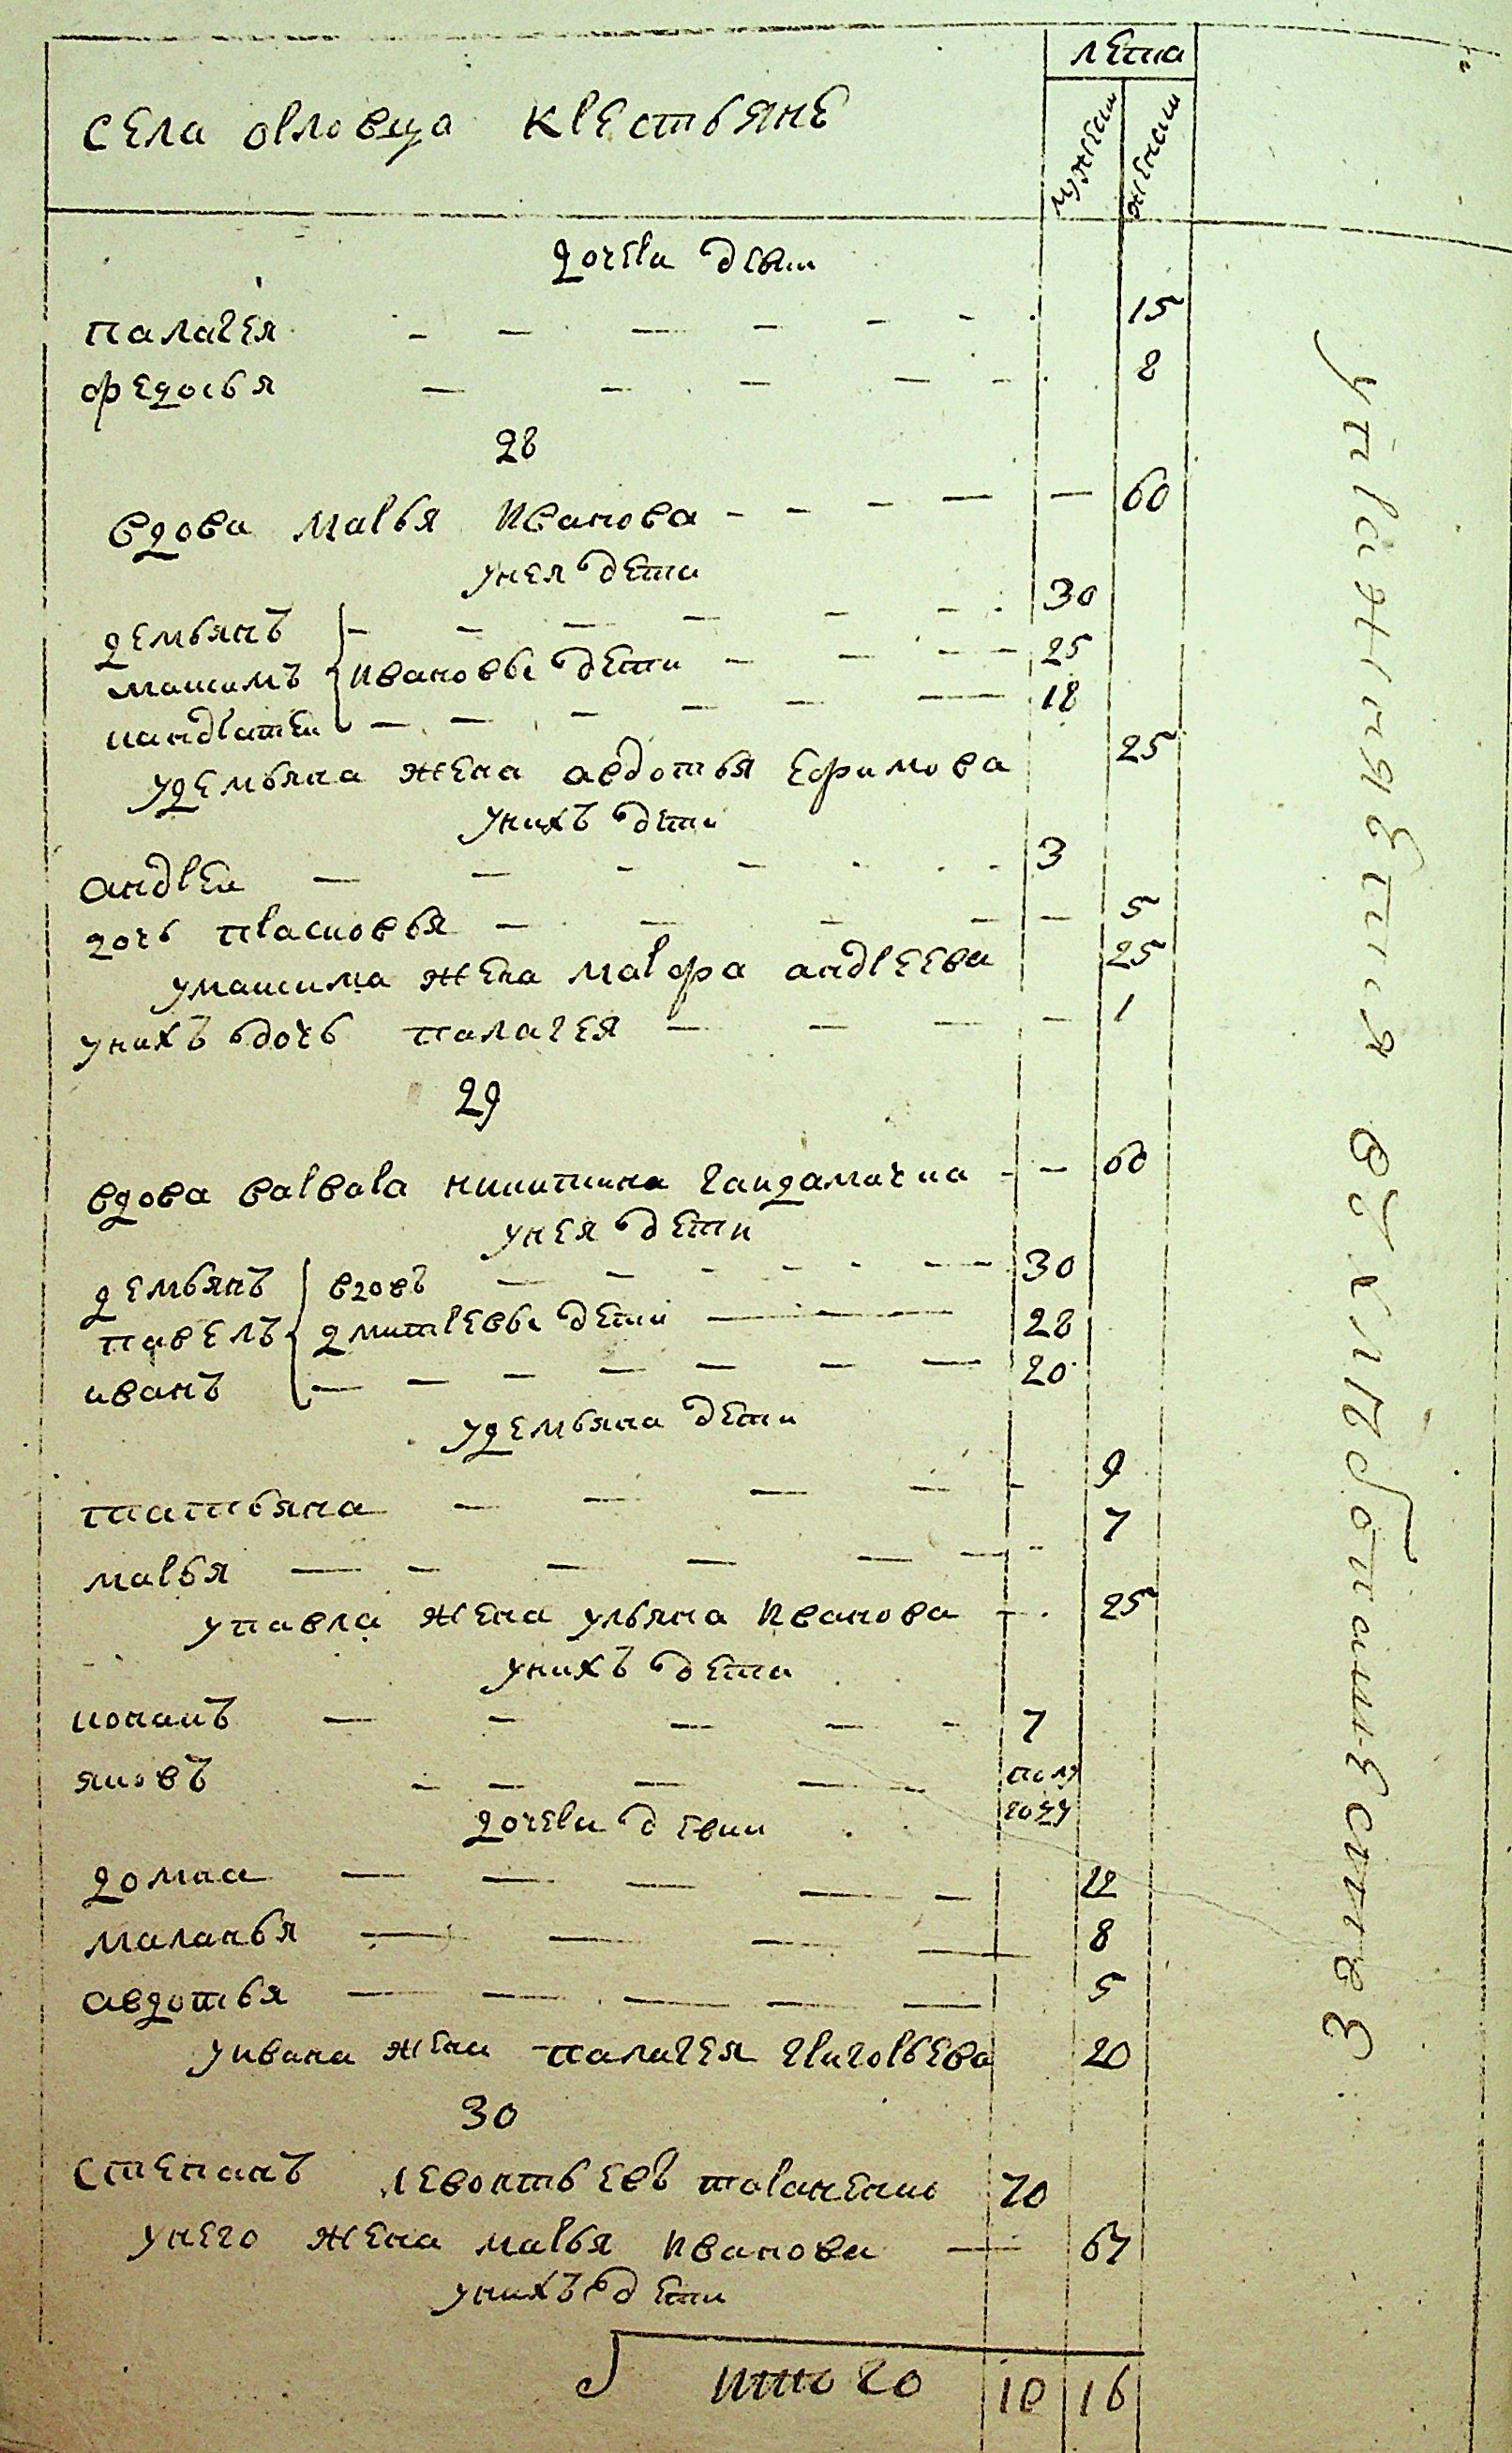 лета
села орловца крестьяне
мужеск женск
дочери девки
палагея 15
федосья 8
28
вдова марья иванова 60
унея дети
демьянъ 30
максимъ ивановы дети 25
кандратеи 18
удемьяна жена авдотья ефимова 25
унихъ дети
андреи 3
дочь прасковья 5
умаксима жена марфа андреева 25
унихъ дочь палагея 1
29
вдова варвара никитина гаидамачка 60
унея дети
демьянъ вдовъ 30
павелъ дмитревы дети 28
иванъ 20
удемьяна дети
татьяна 9
марья 7
упавла жена ульяна иванова 25
унихъ дети
конанъ 7
яковъ полу году
дочери девки
домна 12
маланья 8
авдотья 5
уивана жена палагея григорьева 20
30
степанъ левонтьевъ тараненко 70
унего жена марья иванова 67
унихъ дети
итого 10 16